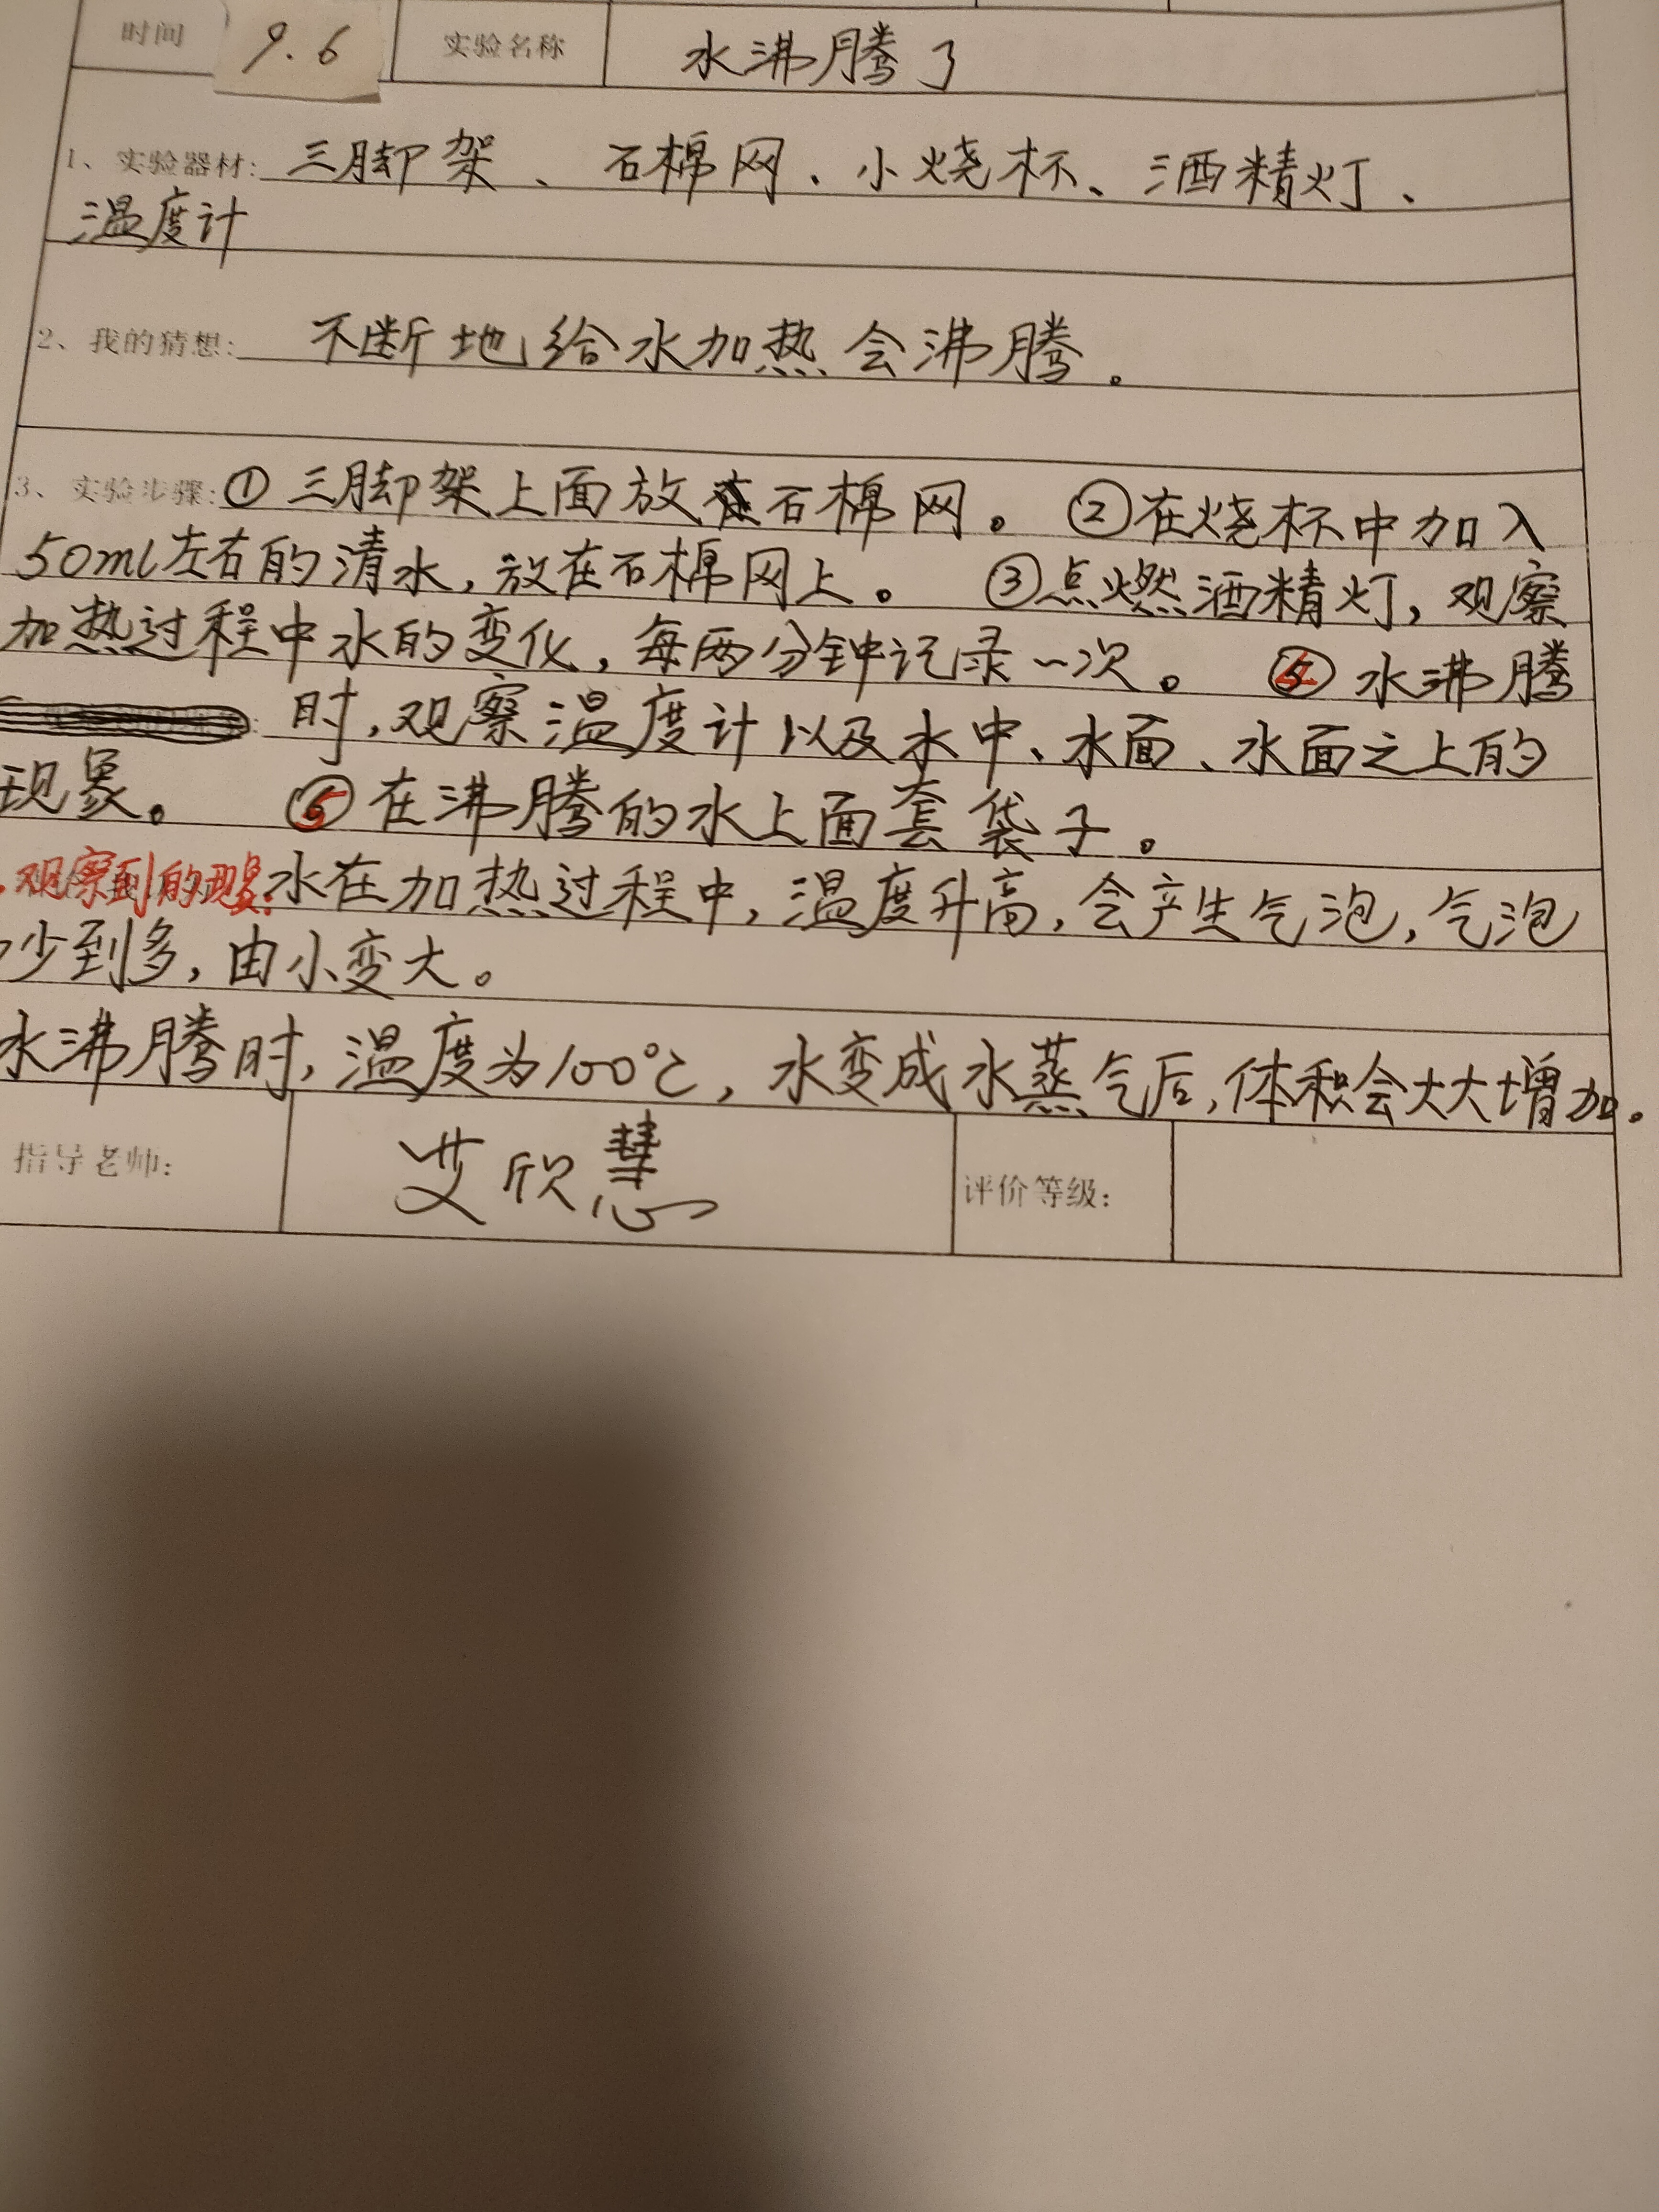 时间 9.6 实验名称 水沸腾了
1、实验器材：三脚架、石棉网、小烧杯、酒精灯、
温度计
2、我的猜想：不断地给水加热会沸腾。
3、实验步骤：①三脚架上面放石棉网。 ②在烧杯中加入
50ml左右的清水，放在石棉网上。 ③点燃酒精灯，观察
加热过程中水的变化，每两分钟记录一次。 ④水沸腾
时，观察温度计以及水中、水面、水面之上的
现象。 ⑤在沸腾的水上面套袋子。
观察到的现象：水在加热过程中，温度升高，会产生气泡，气泡
少到多，由小变大。
水沸腾时，温度为100℃，水变成水蒸气后，体积会大大增加。
指导老师： 艾欣慧 评价等级：